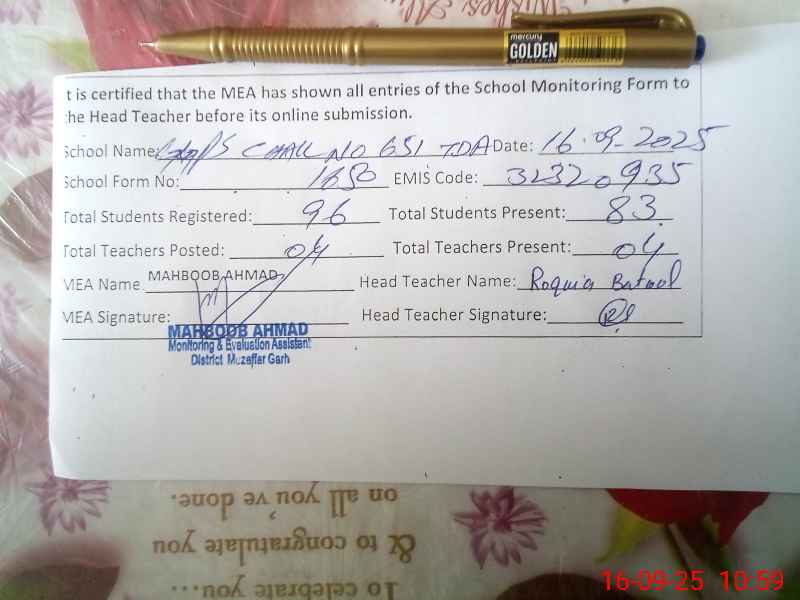 Wishes
mercury
GOLDEN
t is certified that the MEA has shown all entries of the School Monitoring Form to
he Head Teacher before its online submission.
School Name: CHAK NO 651 TDA Date: 16-09-2025
School Form No: 1650 EMIS Code: 32320935
Total Students Registered: 96 Total Students Present: 83
Total Teachers Posted: 04 Total Teachers Present: 04
MEA Name MAHBOOB AHMAD Head Teacher Name: Roquia Batool
MEA Signature: Head Teacher Signature:
MAHBOOB AHMAD
Monitoring & Evaluation Assistant
District Muzaffar Garh
To celebrate you...
& to congratulate you
on all you've done.
16-09-25 10:59